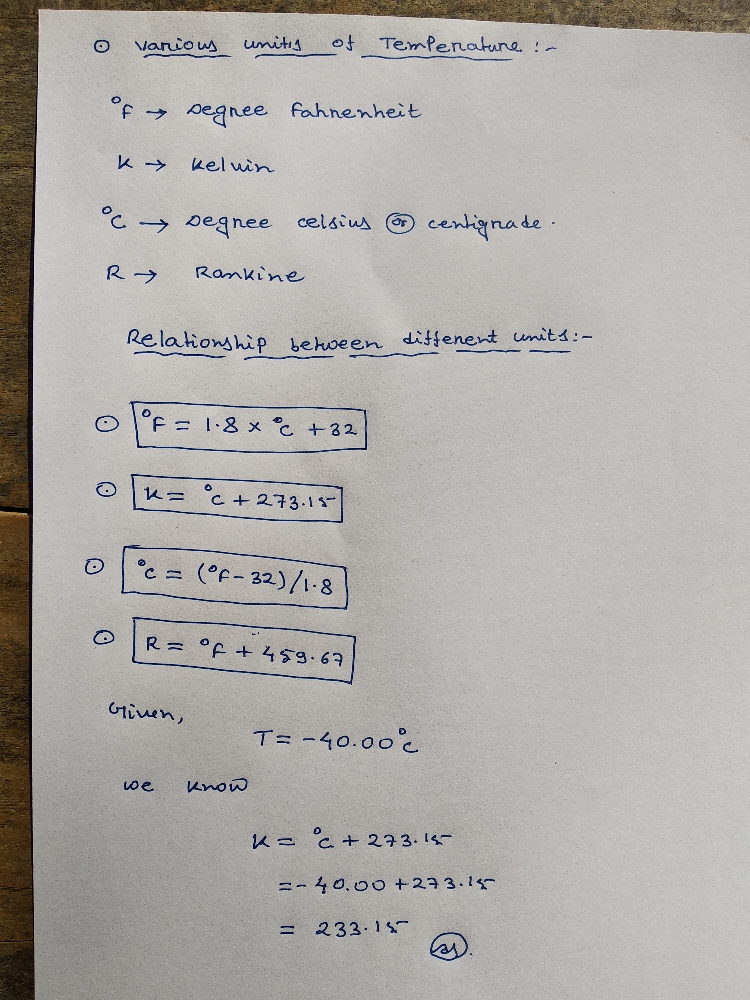 ⊙ various units of Temperature :-
°F → Degree Fahrenheit
K → Kelvin
°C → Degree celsius or centigrade.
R → Rankine
Relationship between different units:-
⊙ °F = 1.8 × °C + 32
⊙ K = °C + 273.15
⊙ °C = (°F - 32)/1.8
⊙ R = °F + 459.67
Given,
T = -40.00°C
we know
K = °C + 273.15
= - 40.00 + 273.15
= 233.15